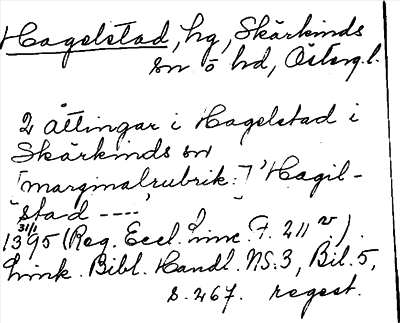 Hagelstad, hg, Skärkinds
sn o hd, Österg.l.
2 åttingar i Hagelstad i
Skärkinds sn
[marginalrubrik:] 'Hagil-
stad ----'
31/1
1395 (Reg. Eccl. Linc. F. 211 v).
Link. Bibl. Handl. NS:3, Bil. 5,
s. 267. regest.